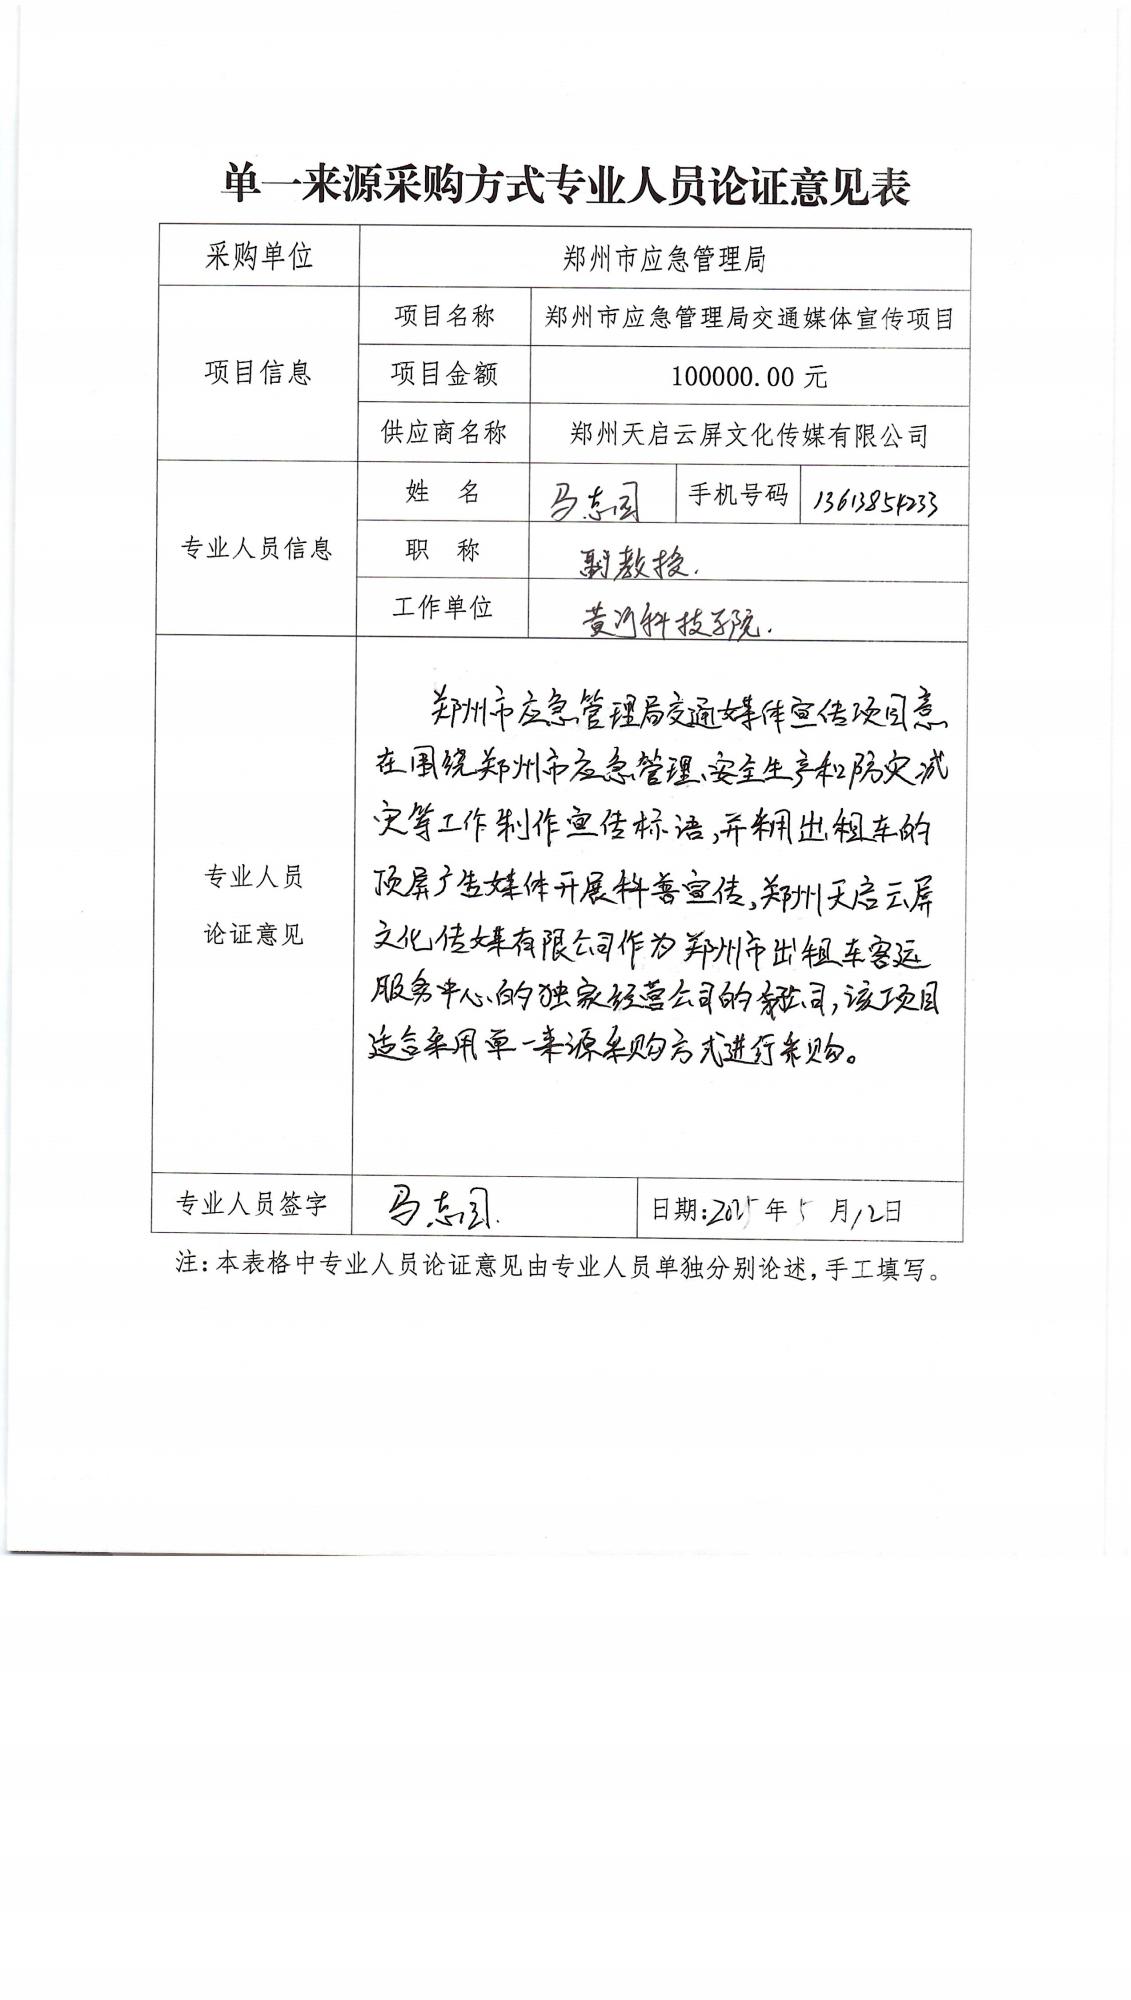 单一来源采购方式专业人员论证意见表
采购单位 郑州市应急管理局
项目信息
项目名称 郑州市应急管理局交通媒体宣传项目
项目金额 100000.00 元
供应商名称 郑州天启云屏文化传媒有限公司
专业人员信息
姓 名 马志国 手机号码 13613854233
职 称 副教授.
工作单位 黄河科技学院.
专业人员
论证意见
郑州市应急管理局交通媒体宣传项目意
在围绕郑州市应急管理、安全生产和防灾减
灾等工作制作宣传标语,并利用出租车的
顶屏广告媒体开展科普宣传,郑州天启云屏
文化传媒有限公司作为郑州市出租车客运
服务中心的独家经营公司的公司,该项目
适合采用单一来源采购方式进行采购。
专业人员签字 马志国. 日期:2025年5月12日
注:本表格中专业人员论证意见由专业人员单独分别论述,手工填写。